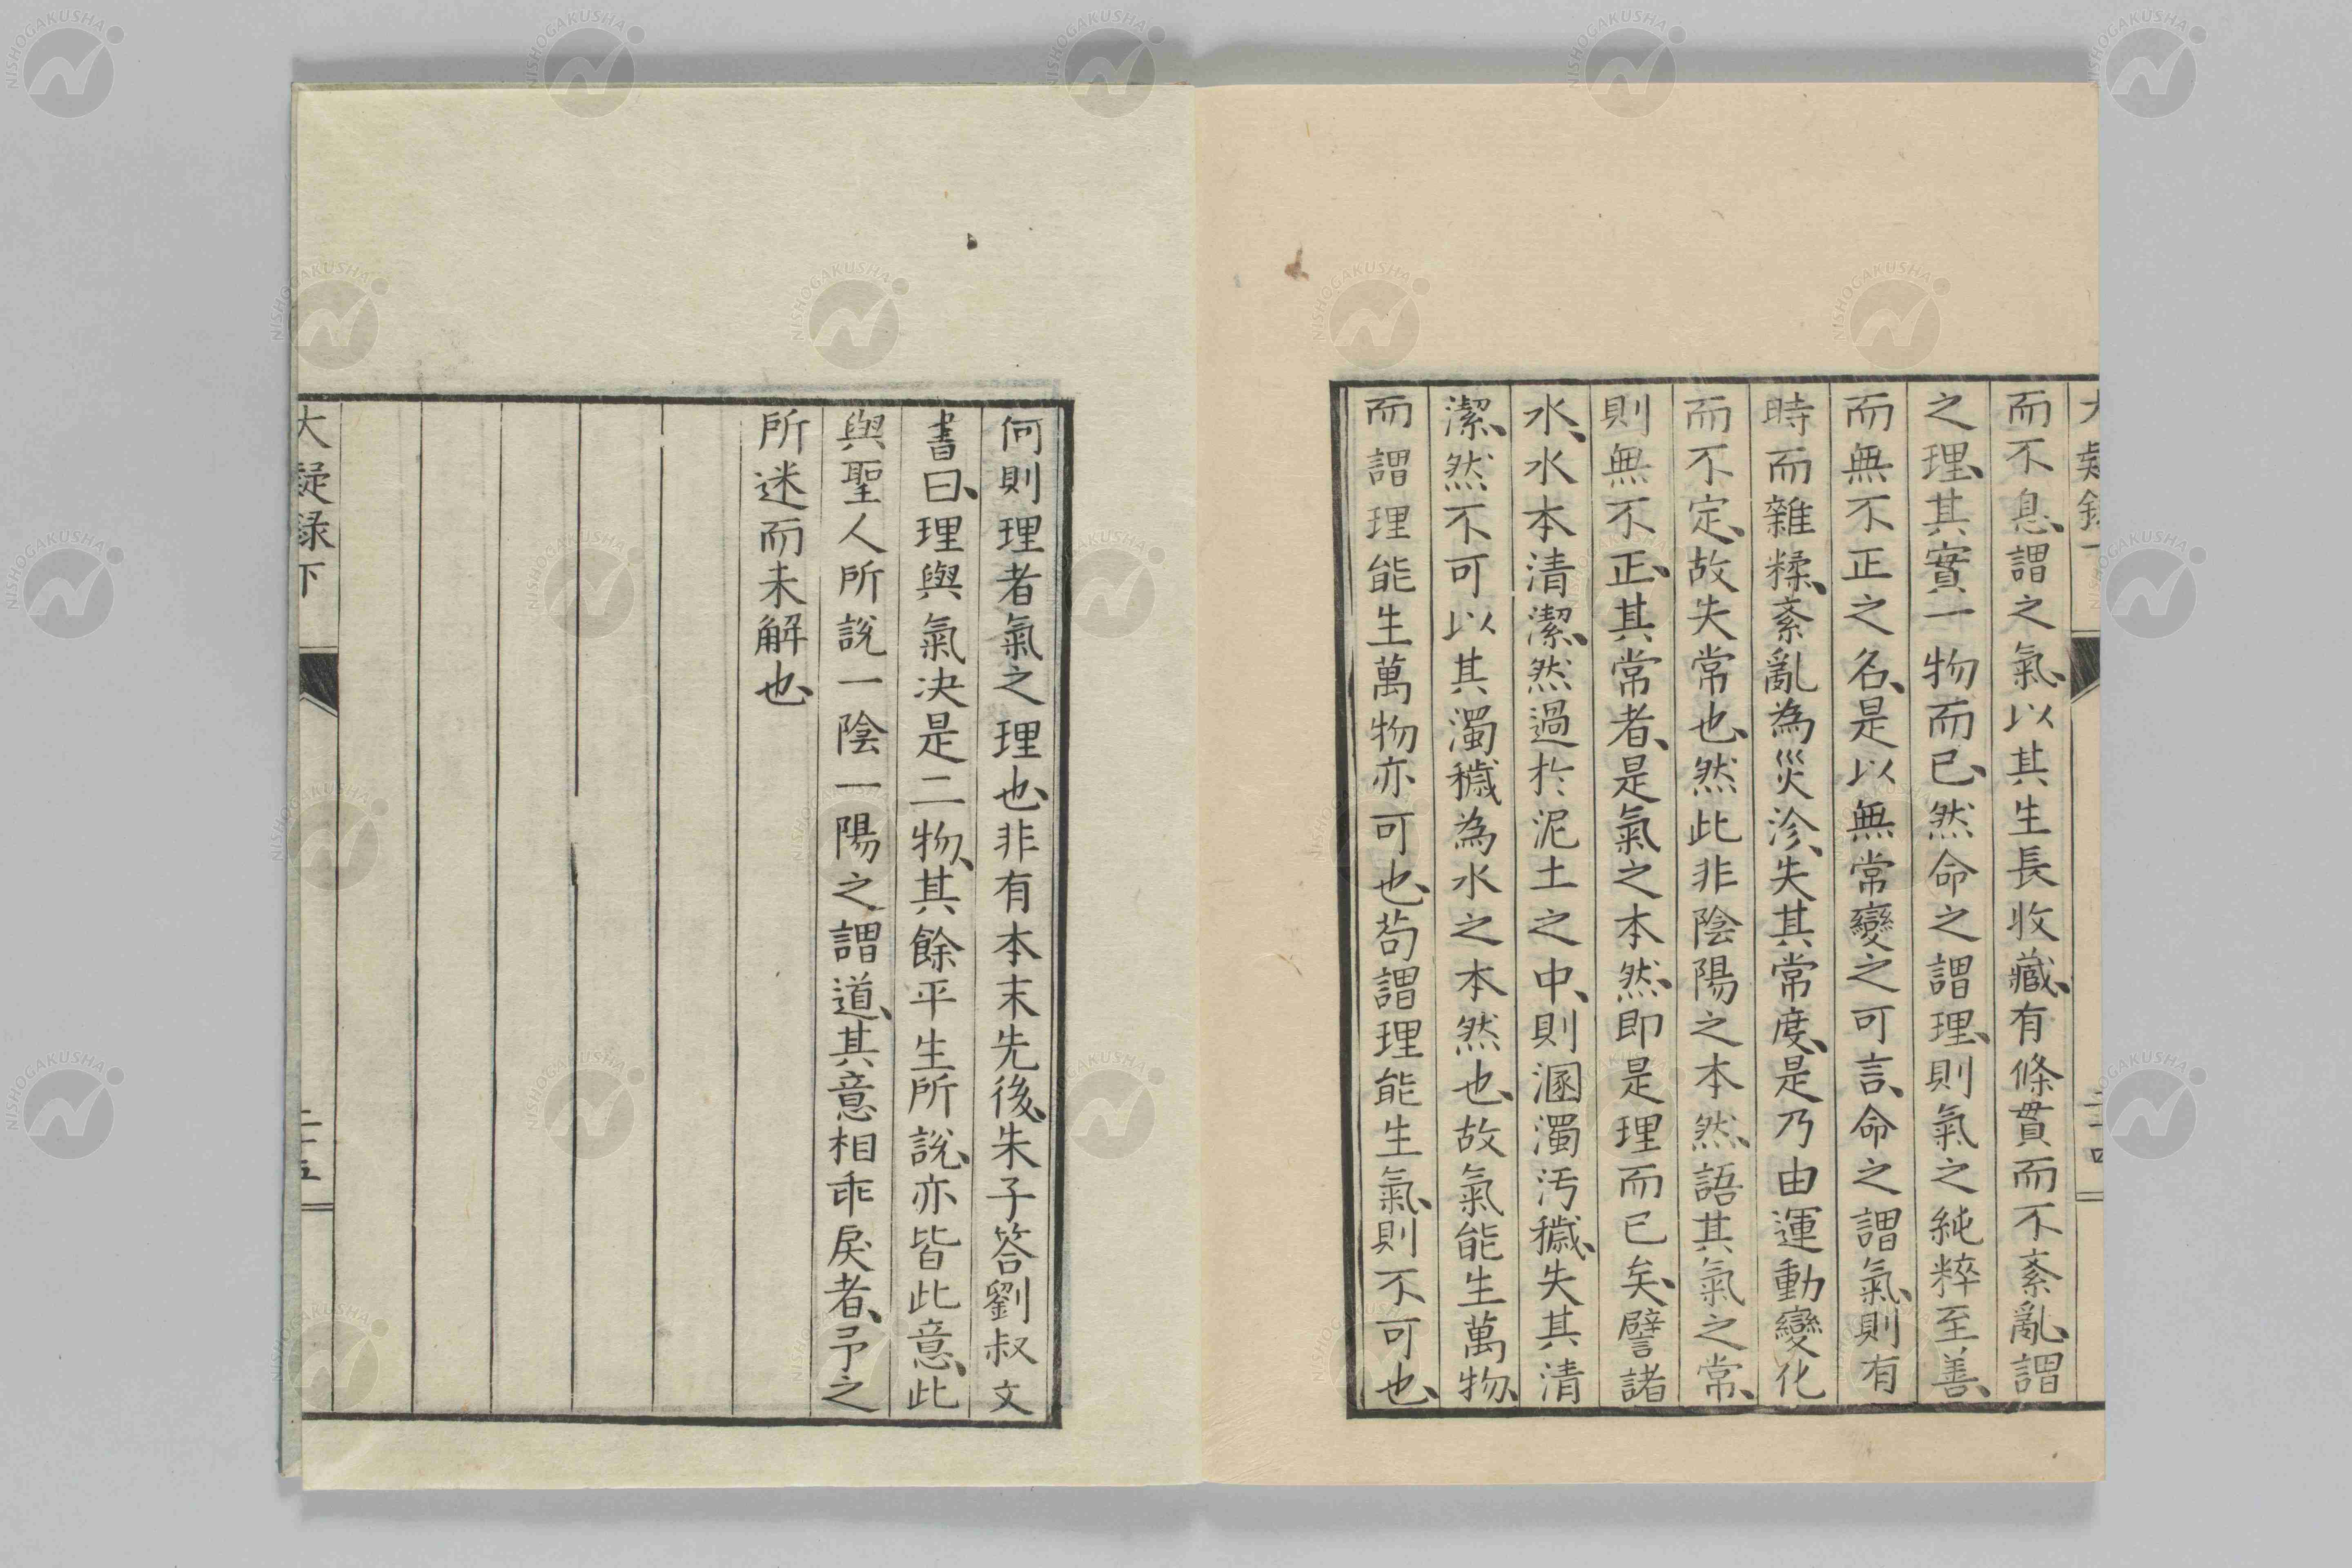 大疑録下
二十四
而不息、謂之氣、以其生長收藏、有條貫而不紊亂、謂
之理、其實一物而已、然命之謂理、則氣之純粹至善、
而無不正之名、是以無常變之可言、命之謂氣、則有
時而雜糅、紊亂為災沴、失其常度、是乃由運動變化
而不定、故失常也、然此非陰陽之本然、語其氣之常、
則無不正、其常者、是氣之本然、即是理而已矣、譬諸
水、水本清潔、然過於泥土之中、則溷濁汚穢、失其清
潔、然不可以其濁穢為水之本然也、故氣能生萬物、
而謂理能生萬物亦可也、苟謂理能生氣、則不可也、
何則理者氣之理也、非有本末先後、朱子答劉叔文
書曰、理與氣决是二物、其餘平生所說、亦皆此意、此
與聖人所說一陰一陽之謂道、其意相乖戾者、予之
所迷而未解也、
大疑録下
二十五
NISHOGAKUSHA